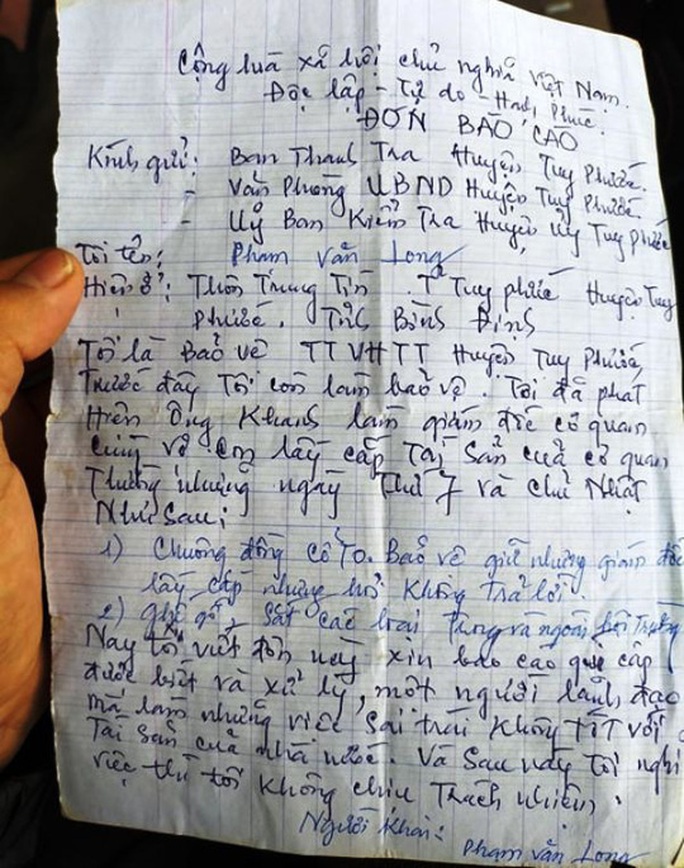 Cộng hoà xã hội chủ nghĩa Việt Nam.
Độc lập - Tự do - Hạnh Phúc.
ĐƠN BÁO CÁO
Kính gửi: Ban Thanh Tra Huyện Tuy Phước.
- Văn Phòng UBND Huyện Tuy Phước.
- Uỷ Ban Kiểm Tra Huyện Uỷ Tuy Phước
Tôi tên: Phạm Văn Long
Hiện ở: Thôn Trung Tín. T² Tuy phước Huyện Tuy
Phước. Tỉnh Bình Định
Tôi là Bảo vệ TTVHTT Huyện Tuy Phước,
Trước đây Tôi còn làm bảo vệ. Tôi đã phát
Hiện Ông Khanh làm giám đốc cơ quan
cùng vợ con lấy cắp Tài sản của cơ quan
Thường những ngày Thứ 7 và chủ Nhật
Như sau:
1) Chuông đồng cổ To. Bảo vệ giữ nhưng giám đốc
lấy cắp nhưng hỏi không trả lời.
2) ghế gỗ, sắt các loại Trong và ngoài hội Trường
Nay tôi viết đơn này xin báo cáo quý cấp
được biết và xử lý, một người lãnh đạo
mà làm những việc sai trái không TỐT với
Tài sản của nhà nước. Và sau này tôi nghỉ
việc thì tôi không chịu Trách nhiệm.
Người khai:
Phạm Văn Long